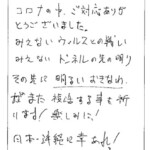 コロナの中、ご対応ありが
とうございました。
みえない ウィルスとの戦い
みえない トンネルの先の明り
その先に 明るい
また 復活する事を祈
ります! 楽しみに!
日本・津軽に幸あれ!